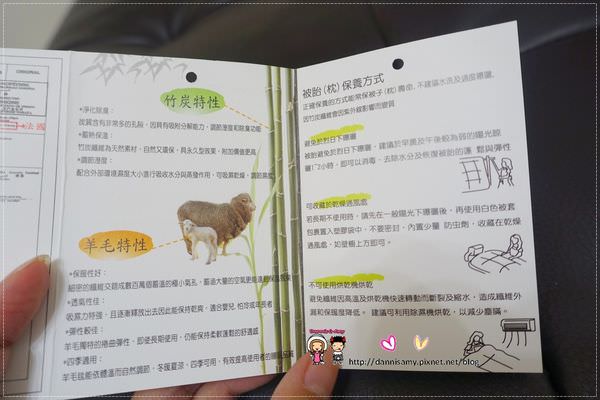 ORIGINAL
法國
竹炭特性
*淨化除臭：
炭質含有非常多的孔隙，因具有吸附分解能力，調節溼度和除臭功能
*蓄熱保溫：
竹炭纖維為天然素材，自然又環保，具永久型效果，附加價值更高
*調節溼度：
配合外部環境濕度大小進行吸收水分與蒸發作用，可吸濕乾燥，調節濕度
羊毛特性
*保暖性好：
細密的纖維交錯成數百萬個蓄溫的極小氣孔，蓄造大量的空氣更能達到保溫效果
*透氣性佳：
吸濕力特強，且逐漸釋放出去因此能保持乾爽，適合嬰兒，怕冷或年長者
*彈性較佳：
羊毛獨特的捲曲彈性，即使長期使用，仍能保持柔軟蓬鬆的舒適感
*四季適用：
羊毛毯能依體溫而自然調節，冬暖夏涼，四季可用，有效提高使用者的睡眠品質
被胎（枕）保養方式
正確保養的方式能常保被子（枕）壽命，不建議水洗及過度曝曬，
因竹炭纖維會因紫外線影響而變質
避免於烈日下曝曬
被胎避免於烈日下曝曬，建議於早晨及午後較為弱的陽光晾
曬1~2小時，即可以消毒，去除水分及恢復被胎的蓬鬆與彈性
可收藏於乾燥通風處
若長期不使用時，請先在一般陽光下曝曬後，再使用白色被套
包裹置入塑膠袋中，不要密封，內置少量 防虫劑，收藏在乾燥
通風處，如壁櫥上方即可。
不可使用烘乾機烘乾
避免纖維因高溫及烘乾機快速轉動而斷裂及縮水，造成纖維外
漏和保暖度降低。 建議可利用除濕機烘乾，以減少塵蹣。
http://dannisamy.pixnet.net/blog